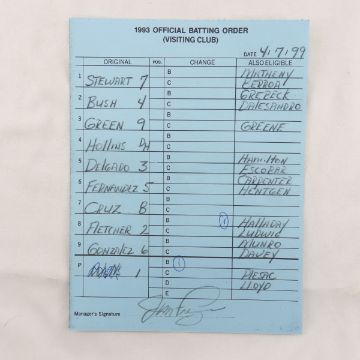 1993 OFFICIAL BATTING ORDER
(VISITING CLUB)
DATE 4/7/99
ORIGINAL POS. CHANGE ALSO ELIGIBLE
1 STEWART 7 B MATHENY
C BERROA
2 BUSH 4 B GREBECK
C DALESANDRO
3 GREEN 9 B GREENE
C
4 HOLLINS DH B
C
5 DELGADO 3 B HAMILTON
C ESCOBAR
6 FERNANDEZ 5 B CARPENTER
C HENTGEN
7 CRUZ 8 B
C
8 FLETCHER 2 B 1 HALLADAY
C LUDWIG
9 GONZALEZ 6 B MUNRO
C DAVEY
P 1 B 1
C PLESAC
D LLOYD
E
Manager's Signature